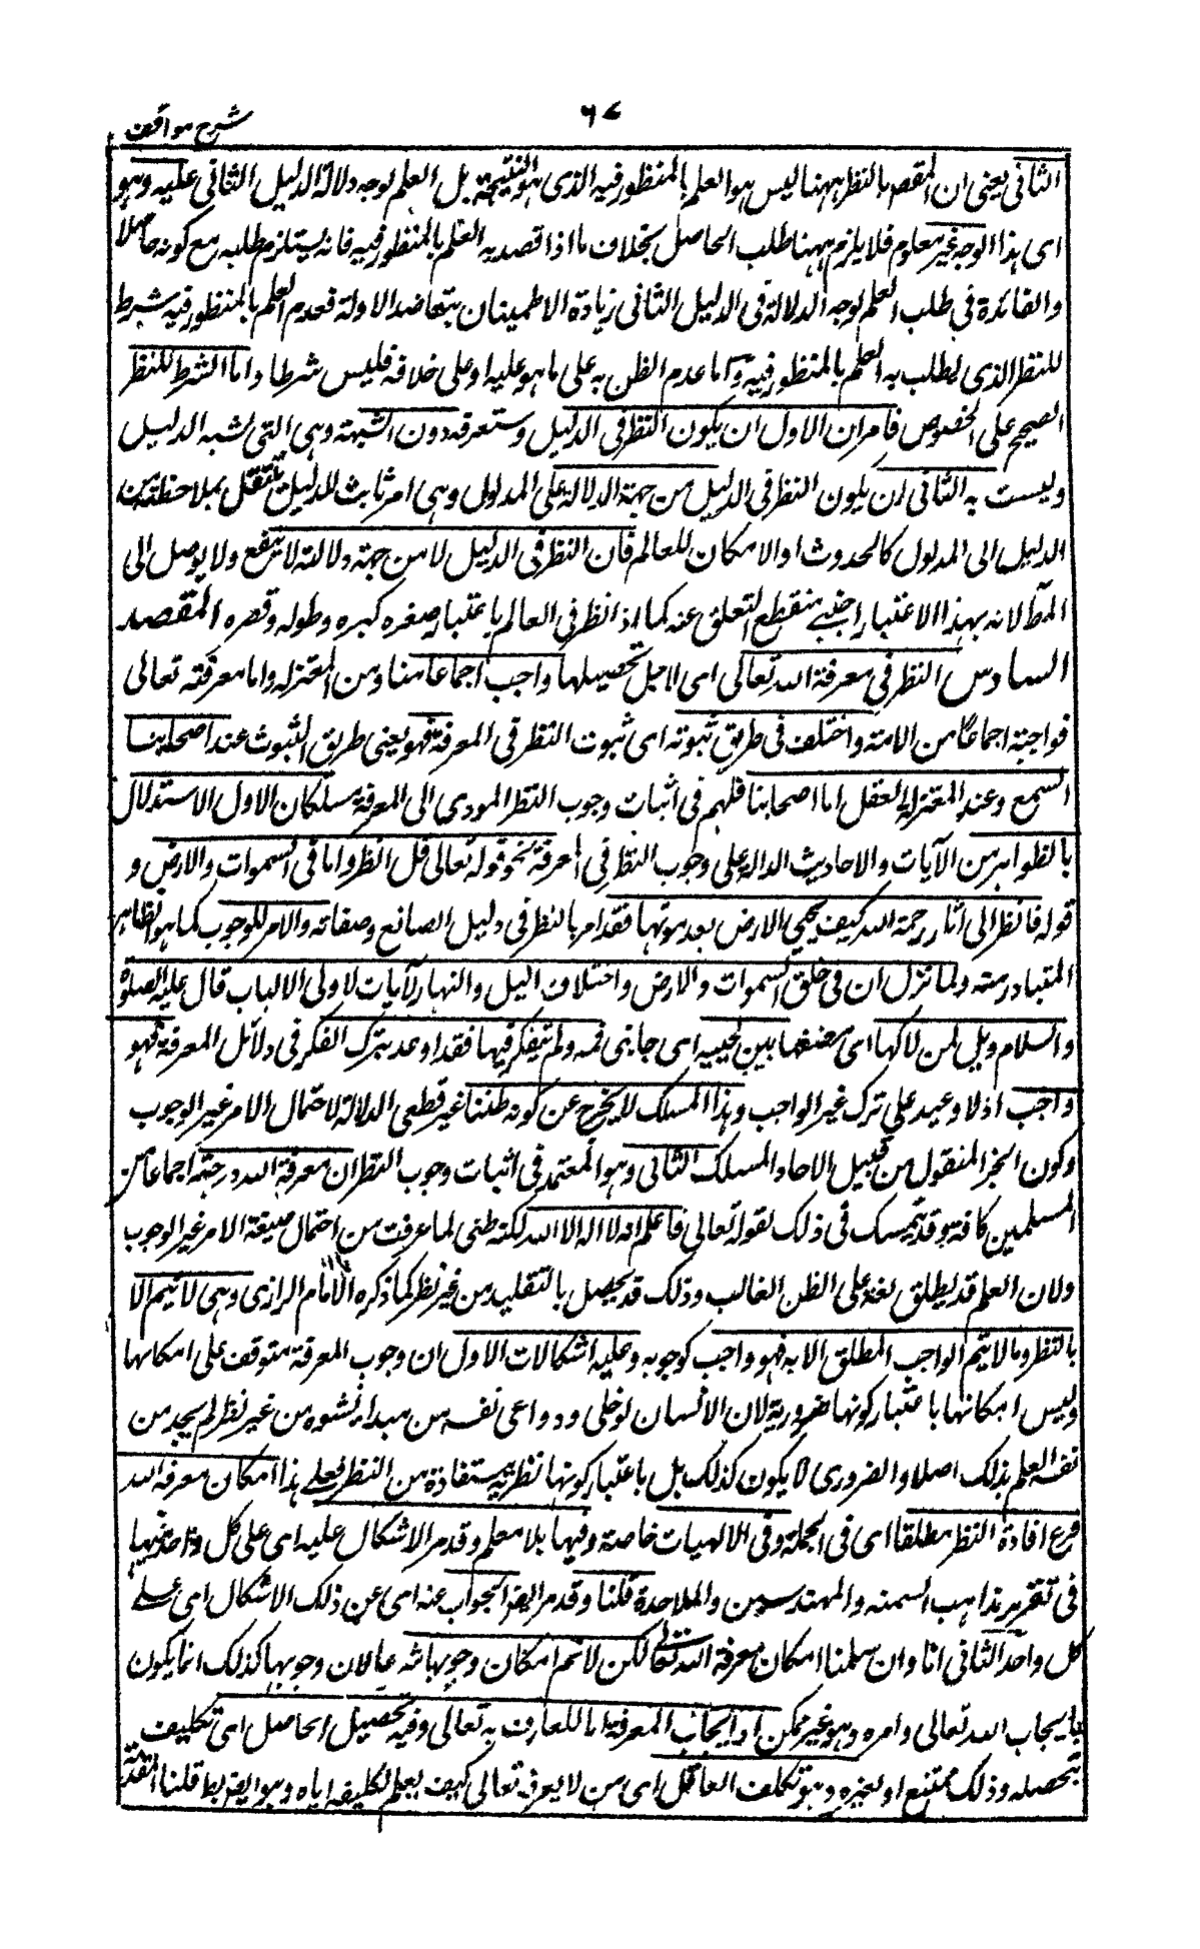 ٦٧
شرح مواقف
الثانی یعنی ان المقصد بالنظر ههنا لیس هو العلم بالمنظور فیه الذی هو النتیجة بل العلم لوجه دلالة الدلیل الثانی علیه وهو
ای هذا الوجه غیر معلوم فلا یلزم ههنا طلب الحاصل بخلاف ما اذا قصد به العلم بالمنظور فیه فانه یستلزم طلبه مع کونه حاصلا
والفائدة فی طلب العلم لوجه الدلالة فی الدلیل الثانی زیادة الاطمینان بتعاضد الادلة فعدم العلم بالمنظور فیه شرط
للنظر الذی یطلب به العلم بالمنظور فیه واما عدم الظن به علی ما هو علیه او علی خلافه فلیس شرطا واما الشرط للنظر
الصحیح علی الخصوص فامران الاول ان یکون النظر فی الدلیل وستعرفه دون الشبهة وهی التی تشبه الدلیل
ولیست به الثانی ان یکون النظر فی الدلیل من جهة الدلالة علی المدلول وهی امر ثابت للدلیل ینتقل بملاحظته من
الدلیل الی المدلول کالحدوث او الامکان للعالم فان النظر فی الدلیل لا من جهة دلالته لا ینفع ولا یوصل الی
المط لانه بهذا الاعتبار اجنبی منقطع التعلق عنه کما اذا نظر فی العالم باعتبار صغره کبره وطوله وقصره المقصد
السادس النظر فی معرفة الله تعالی ای لاجل تحصیلها واجب اجماعا منا ومن المعتزله واما معرفته تعالی
فواجبة اجماعا من الامة واختلف فی طریق ثبوته ای ثبوت النظر فی المعرفة فهو یعنی طریق الثبوت عند اصحابنا
السمع وعند المعتزله العقل اما اصحابنا فلهم فی اثبات وجوب النظر المودی الی المعرفة مسلکان الاول الاستدلال
بالظواهر من الآیات والاحادیث الدالة علی وجوب النظر فی المعرفة نحو قوله تعالی قل انظروا ما فی السموات والارض و
قوله فانظر الی اثار رحمة الله کیف یحیی الارض بعد موتها فقد امر بالنظر فی دلیل الصانع وصفاته والامر للوجوب کما هو الظاهر
المتبادر منه ولما نزل ان فی خلق السموات والارض واختلاف اللیل والنهار لآیات لاولی الالباب قال علیه الصلوة
والسلام ویل لمن لاکها ای مضغها بین لحییه ای جانبی فمه ولم یتفکر فیها فقد اوعد بترک الفکر فی دلائل المعرفة فهو
واجب اذ لا وعید علی ترک غیر الواجب وهذا المسلک لا یخرج عن کونه ظنیا غیر قطعی الدلالة لاحتمال الامر غیر الوجوب
وکون الخبر المنقول من قبیل الاحاد المسلک الثانی وهو المعتمد فی اثبات وجوب النظر ان معرفة الله واجبة اجماعا من
المسلمین کافة وقد یتمسک فی ذلک بقوله تعالی فاعلم انه لا اله الا الله لکنه ظنی لما عرفت من احتمال صیغة الامر غیر الوجوب
ولان العلم قد یطلق لغة علی الظن الغالب وذلک قد یحصل بالتقلید من غیر نظر کما ذکره الامام الرازی وهی لا تتم الا
بالنظر وما لا یتم الواجب المطلق الا به فهو واجب کوجوبه وعلیه اشکالات الاول ان وجوب المعرفة متوقف علی امکانها
ولیس امکانها باعتبار کونها ضروریة لان الانسان لو خلی ودواعی نفسه من مبداء نشوه من غیر نظر لم یجد من
نفسه العلم بذلک اصلا والضروری لا یکون کذلک بل باعتبار کونها نظریة مستفادة من النظر فعلی هذا امکان معرفة الله
فرع افادة النظر مطلقا ای فی الجملة وفی الالهیات خاصة وفیها بلا معلم وقد مر الاشکال علیه ای علی کل واحد منها
فی تقریر مذاهب السمنه والمهندسین والملاحدة قلنا وقد مر ایضا الجواب عنه ای عن ذلک الاشکال ای علی
کل واحد الثانی انا وان سلمنا امکان معرفة الله تعالی لکن لا نم امکان وجوبها شرعا لان وجوبها کذلک انما یکون
بایجاب الله تعالی وامره وهو غیر ممکن اذ ایجاب المعرفة اما للعارف به تعالی وفیه تحصیل الحاصل ای تکلیف
بتحصیله وذلک ممتنع او لغیره وهو تکلیف الغافل ای من لا یعرفه تعالی کیف یعلم تکلیفه ایاه وهو ایضا بط قلنا